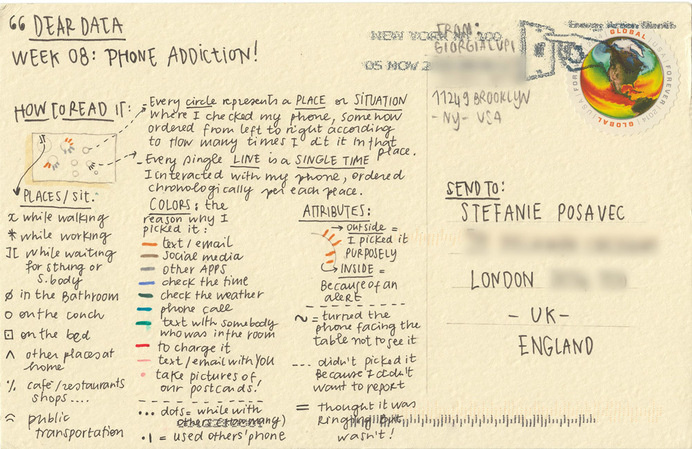 “ DEAR DATA
WEEK 08: PHONE ADDICTION!
HOW TO READ IT:
Every circle represents a PLACE or SITUATION
where I checked my phone, somehow
ordered from left to right according
to How many times I did it in that
place.
Every single LINE is a SINGLE TIME
I interacted with my phone, ordered
chronologically per each peace.
PLACES/sit.
x while walking
* while working
while waiting
for sthung or
s.body
ø in the Bathroom
o on the conch
⊡ on the bed
^ other places at
home
café/restaurants
shops....
public
transportation
COLORS: the
reason why I
picked it:
text/email
social media
other APPS
check the time
check the weather
phone call
text with somebody
who was in the room
to charge it
text/email with YOU
take pictures of
our postcards!
... dots = while with
others (how many)
•| = used others' phone
ATTRIBUTES:
outside =
I picked it
PURPOSELY
INSIDE =
Because of an
alert
~ = turned the
phone facing the
table not to see it
... didn't picked it
Because I didn't
want to report
= thought it was
ringing But
wasn't!
NEW YORK NY 100
05 NOV 2
FROM:
GIORGIA LUPI
11249 BROOKLYN
- NY - USA
GLOBAL
FOREVER
GLOBAL
SEND TO:
STEFANIE POSAVEC
LONDON
- UK -
ENGLAND